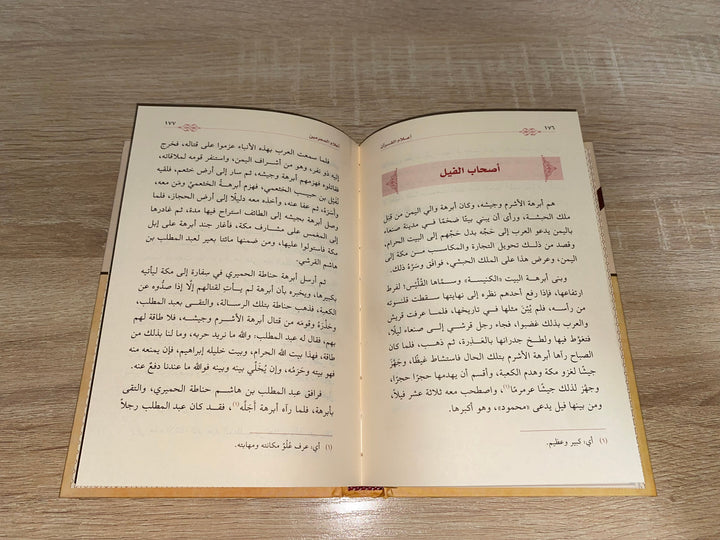 ١٧٦
أعلام القرآن
أصحاب الفيل
هم أبرهة الأشرم وجيشه، وكان أبرهة والي اليمن من قبل
ملك الحبشة، ورأى أن يبني بيتًا ضخمًا في مدينة صنعاء
باليمن يدعو العرب إلى حجّه بدل حجّهم إلى البيت الحرام،
وقصد من ذلك تحويل التجارة والمكاسب من مكة إلى
اليمن، وعرض هذا على الملك الحبشي، فوافق وسرّه ذلك.
وبنى أبرهة البيت «الكنيسة» وسمّاها القُلَّيْس؛ لفرط
ارتفاعها، فإذا رفع أحدهم نظره إلى نهايتها سقطت قلنسوته
من رأسه، فلم يُبْنَ مثلها في تاريخها، فلما عرفت قريش
والعرب بذلك غضبوا، فجاء رجل قرشي إلى صنعاء ليلًا،
فتغوّط فيها ولطخ جدرانها بالعَذِرة، ثم ذهب، فلما كان
الصباح رآها أبرهة الأشرم بتلك الحال فاستشاط غيظًا، وجَهَّز
جيشًا لغزو مكة وهدم الكعبة، وأقسم أن يهدمها حجرًا حجرًا،
وجهّز لذلك جيشًا عرمرمًا(١)، واصطحب معه ثلاثة عشر فيلًا،
ومن بينها فيل يدعى «محمود»، وهو أكبرها.
(١) أي: كبير وعظيم.
أعلام المجرمين
١٧٧
فلما سمعت العرب بهذه الأنباء عزموا على قتاله، فخرج
إليه ذو نفر، وهو من أشراف اليمن، واستنفر قومه لملاقاته،
فقاتلوه فهزمهم أبرهة وجيشه، ثم سار إلى أرض خثعم، فلقيه
نُفَيْل بن حبيب الخثعمي، فهزم أبرهةُ الخثعميَّ ومَن معه،
وأسَرَهُ، ثم عفا عنه، وأخذه معه دليلًا إلى أرض الحجاز، فلما
وصل أبرهة بجيشه إلى الطائف استراح فيها مدة، ثم غادرها
إلى المغمس على مشارف مكة، فأغار جند أبرهة على إبل
مكة فاستولوا عليها، ومن ضمنها مائتا بعير لعبد المطلب بن
هاشم القرشي.
ثم أرسل أبرهة حناطة الحميري في سفارة إلى مكة ليأتيه
بكبيرها، ويخبره بأن أبرهة لم يأت لقتالهم إلَّا إذا صدُّوه عن
الكعبة، فذهب حناطة بتلك الرسالة، والتقى بعبد المطلب،
وحَذَّرَهُ وقومَه من قتال أبرهة الأشرم وجيشه، فلا طاقة لهم
بهم، فقال له عبد المطلب: والله ما نريد حربه، وما لنا بذلك من
طاقة، فهذا بيت الله الحرام، وبيت خليله إبراهيم، فإن يمنعه منه
فهو بيته وحَرَمُه، وإن يُخَلِّي بينه وبينه فوالله ما عندنا دفعٌ عنه.
فرافق عبد المطلب بن هاشم حناطة الحميري، والتقى
بأبرهة، فلما رآه أبرهة أجَلَّه(١)، فقد كان عبد المطلب رجلاً
(١) أي: عرف عُلُوَّ مكانته ومهابته.